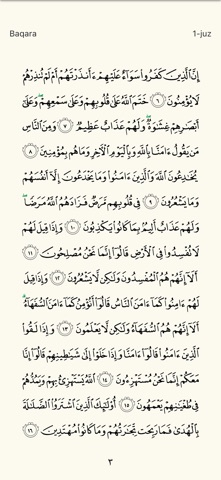 Baqara 1-juz
إِنَّ ٱلَّذِينَ كَفَرُوا۟ سَوَآءٌ عَلَيْهِمْ ءَأَنذَرْتَهُمْ أَمْ لَمْ تُنذِرْهُمْ
لَا يُؤْمِنُونَ ٦ خَتَمَ ٱللَّهُ عَلَىٰ قُلُوبِهِمْ وَعَلَىٰ سَمْعِهِمْ ۖ وَعَلَىٰٓ
أَبْصَٰرِهِمْ غِشَٰوَةٌ ۖ وَلَهُمْ عَذَابٌ عَظِيمٌ ٧ وَمِنَ ٱلنَّاسِ
مَن يَقُولُ ءَامَنَّا بِٱللَّهِ وَبِٱلْيَوْمِ ٱلْءَاخِرِ وَمَا هُم بِمُؤْمِنِينَ ٨
يُخَٰدِعُونَ ٱللَّهَ وَٱلَّذِينَ ءَامَنُوا۟ وَمَا يَخْدَعُونَ إِلَّآ أَنفُسَهُمْ
وَمَا يَشْعُرُونَ ٩ فِى قُلُوبِهِم مَّرَضٌ فَزَادَهُمُ ٱللَّهُ مَرَضًا ۖ
وَلَهُمْ عَذَابٌ أَلِيمٌۢ بِمَا كَانُوا۟ يَكْذِبُونَ ١٠ وَإِذَا قِيلَ لَهُمْ
لَا تُفْسِدُوا۟ فِى ٱلْأَرْضِ قَالُوٓا۟ إِنَّمَا نَحْنُ مُصْلِحُونَ ١١
أَلَآ إِنَّهُمْ هُمُ ٱلْمُفْسِدُونَ وَلَٰكِن لَّا يَشْعُرُونَ ١٢ وَإِذَا قِيلَ
لَهُمْ ءَامِنُوا۟ كَمَآ ءَامَنَ ٱلنَّاسُ قَالُوٓا۟ أَنُؤْمِنُ كَمَآ ءَامَنَ ٱلسُّفَهَآءُ ۗ
أَلَآ إِنَّهُمْ هُمُ ٱلسُّفَهَآءُ وَلَٰكِن لَّا يَعْلَمُونَ ١٣ وَإِذَا لَقُوا۟
ٱلَّذِينَ ءَامَنُوا۟ قَالُوٓا۟ ءَامَنَّا وَإِذَا خَلَوْا۟ إِلَىٰ شَيَٰطِينِهِمْ قَالُوٓا۟ إِنَّا
مَعَكُمْ إِنَّمَا نَحْنُ مُسْتَهْزِءُونَ ١٤ ٱللَّهُ يَسْتَهْزِئُ بِهِمْ وَيَمُدُّهُمْ
فِى طُغْيَٰنِهِمْ يَعْمَهُونَ ١٥ أُو۟لَٰٓئِكَ ٱلَّذِينَ ٱشْتَرَوُا۟ ٱلضَّلَٰلَةَ
بِٱلْهُدَىٰ فَمَا رَبِحَت تِّجَٰرَتُهُمْ وَمَا كَانُوا۟ مُهْتَدِينَ ١٦
٣